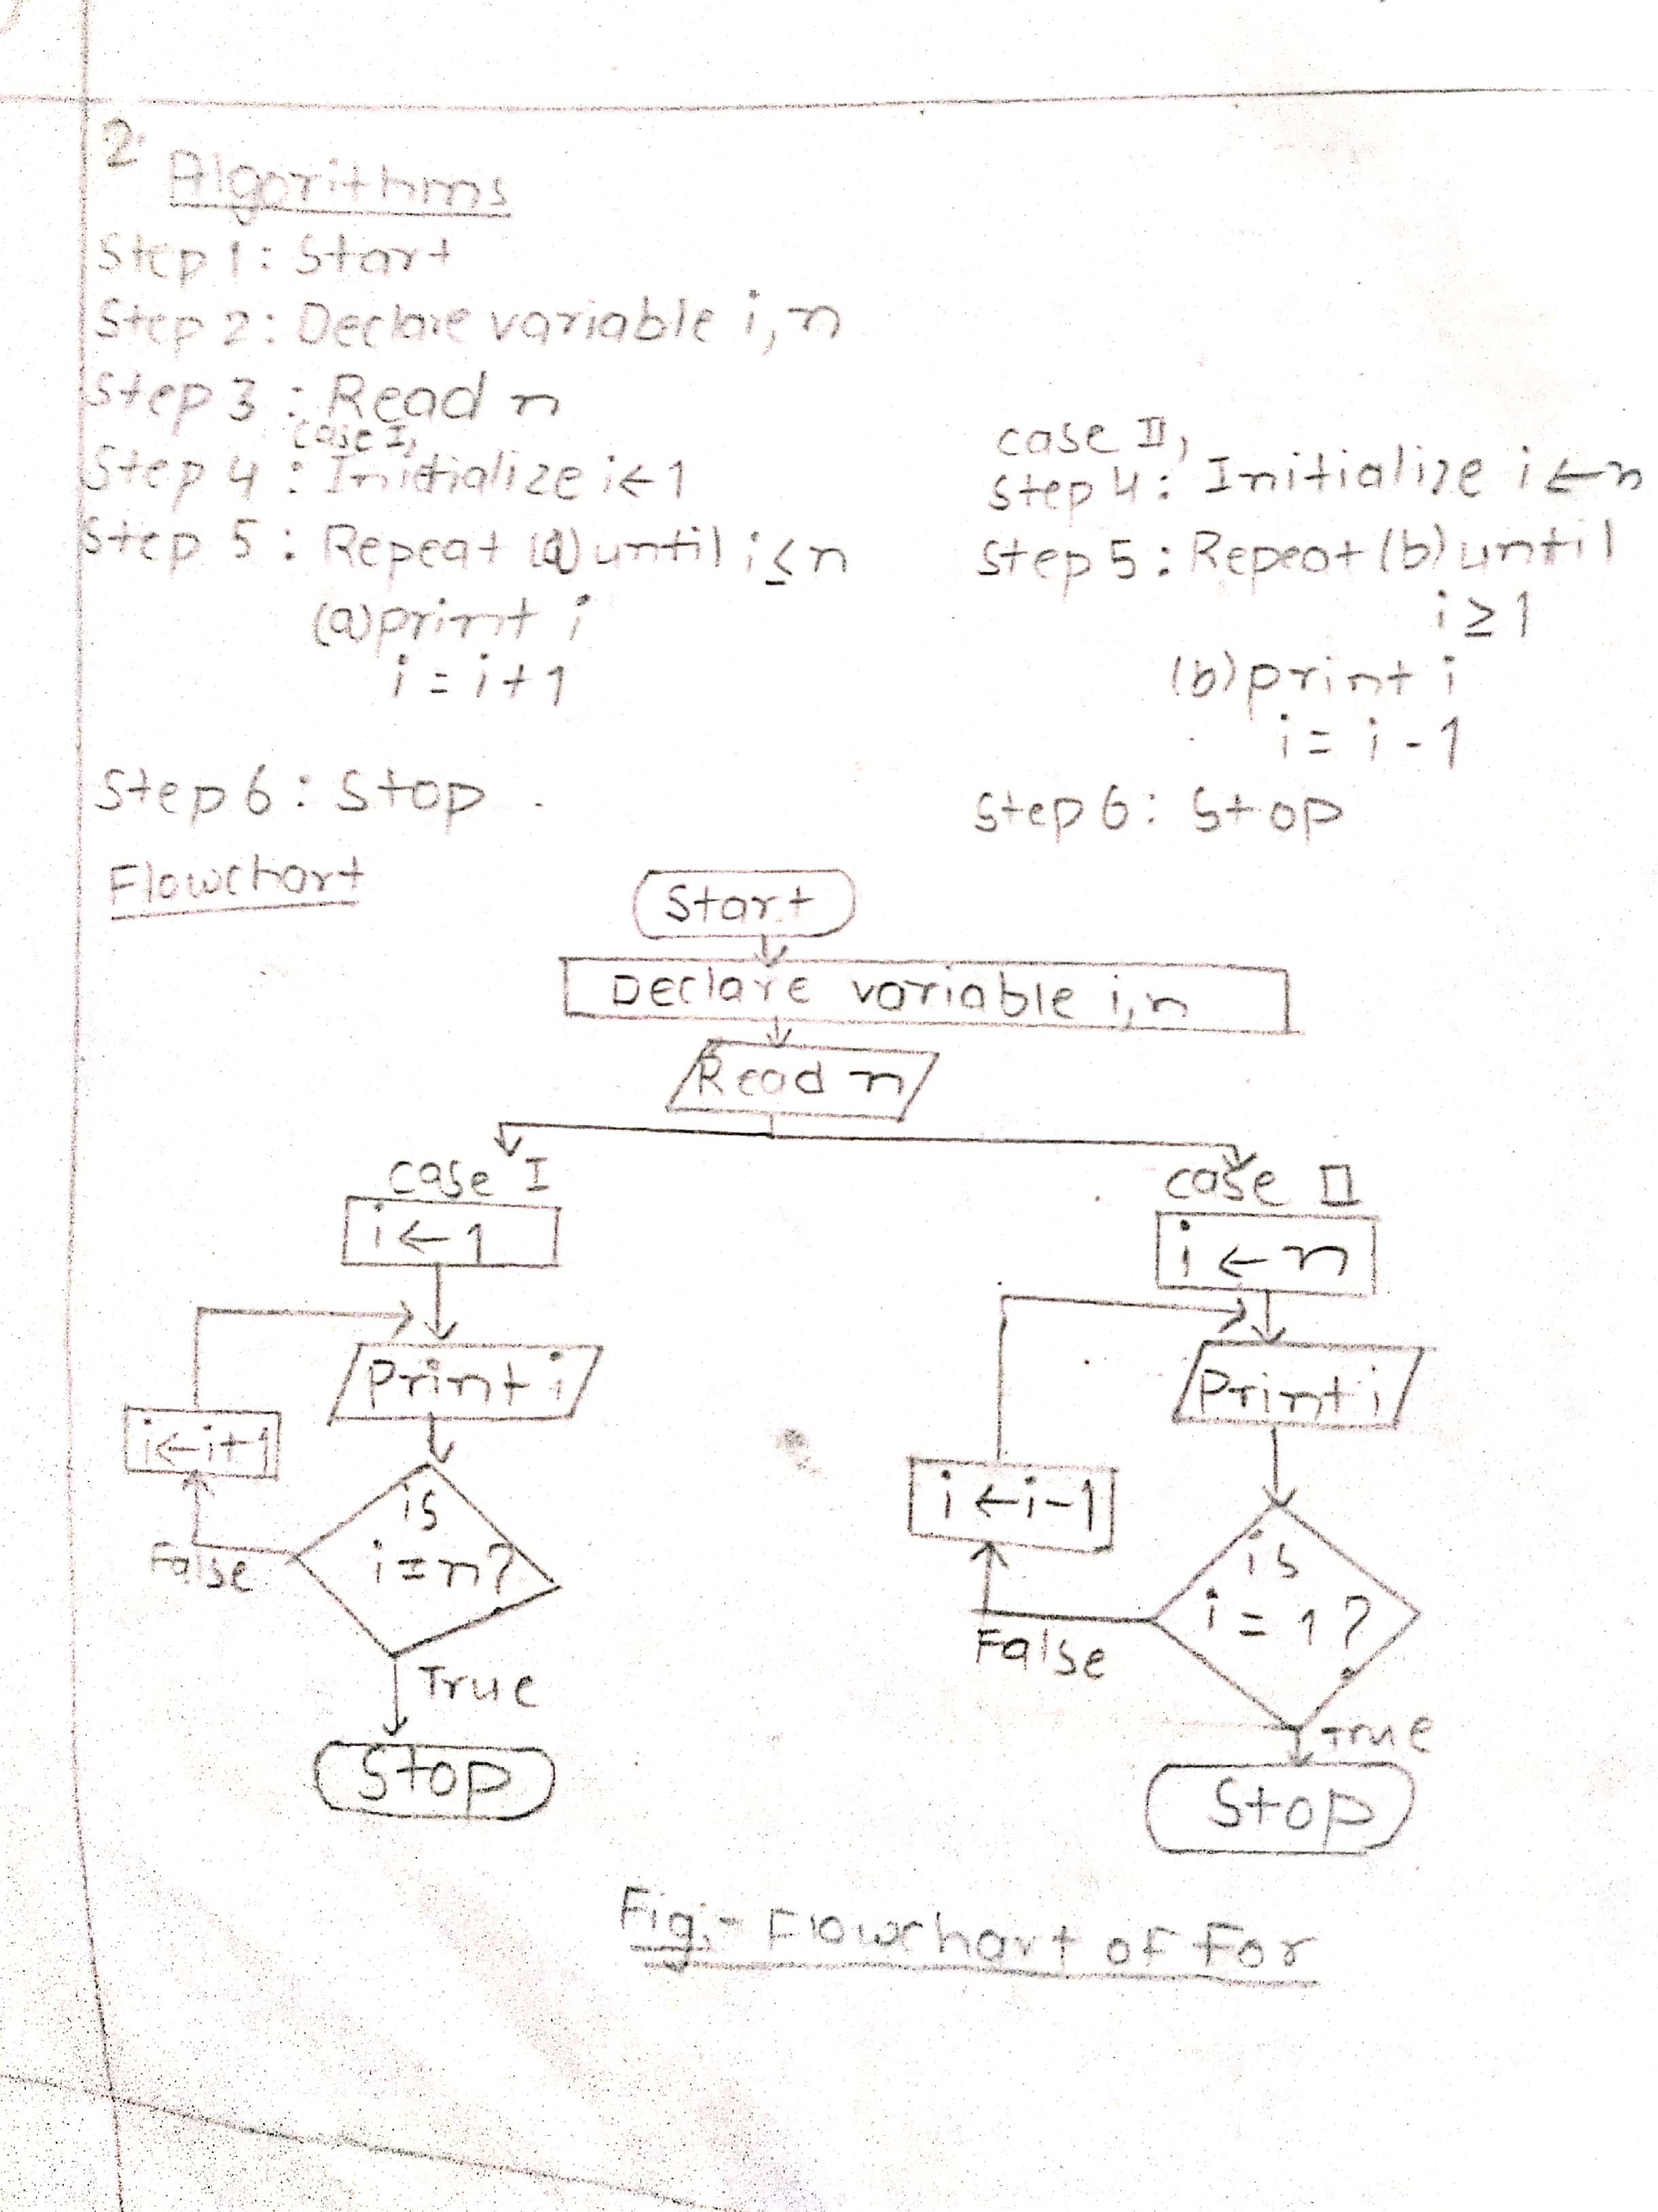 2.
Algorithms
Step 1: Start
Step 2: Declare variable i, n
Step 3 : Read n
case I,
Step 4 : Initialize i ← 1
Step 5 : Repeat (a) until i ≤ n
(a) print i
i = i + 1
Step 6 : Stop .
case II,
Step 4 : Initialize i ← n
Step 5 : Repeat (b) until
i ≥ 1
(b) print i
i = i - 1
Step 6 : Stop
Flowchart
Start
Declare variable i, n
Read n
case I
i ← 1
Print i
i ← i + 1
is
i = n?
False
True
Stop
case II
i ← n
Print i
i ← i - 1
is
i = 1?
False
True
Stop
Fig:- Flowchart of For